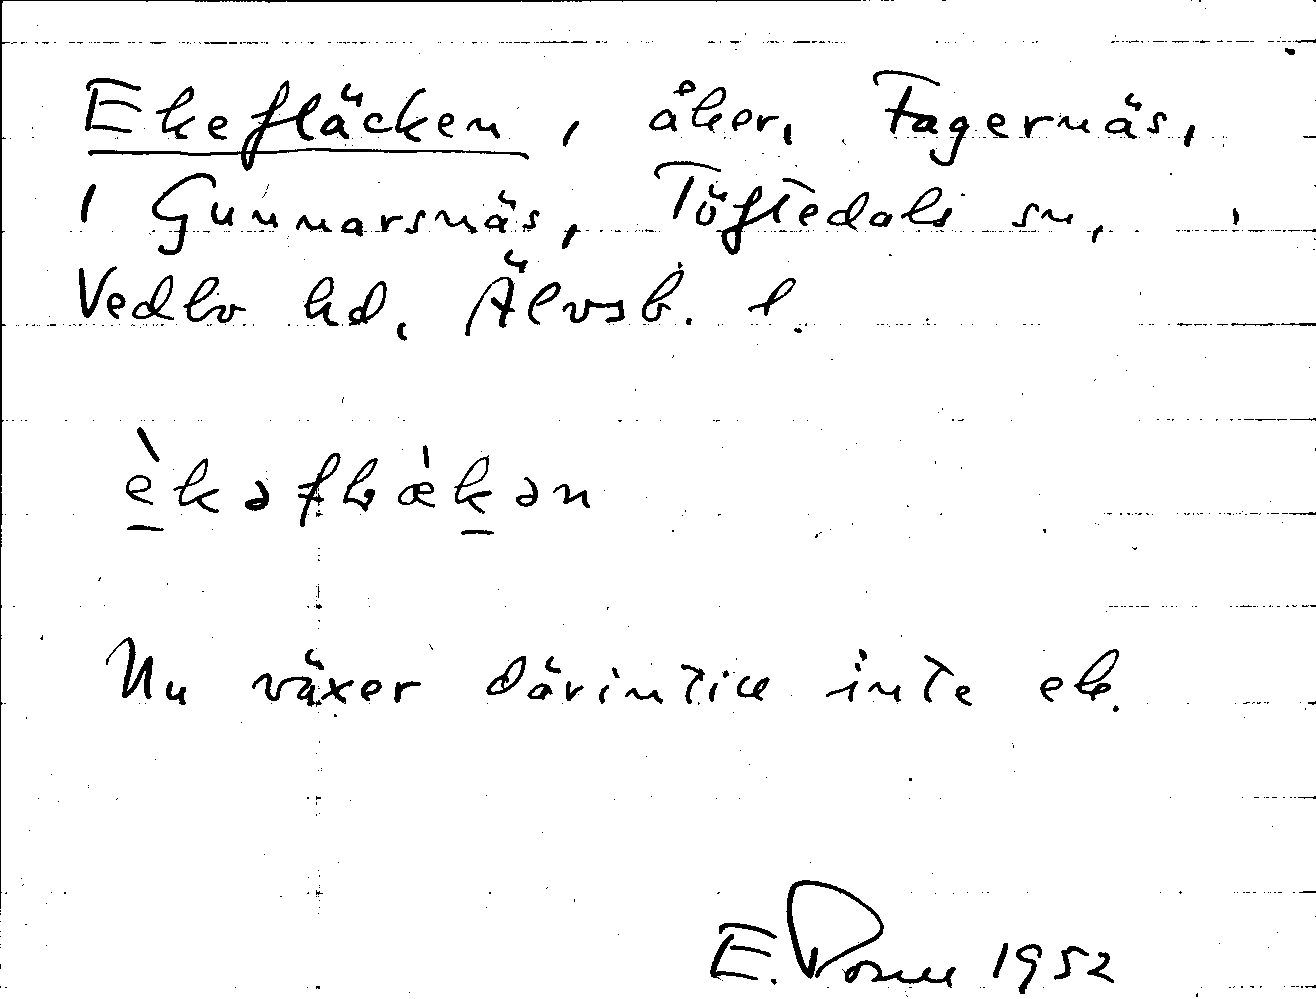 Ekefläcken, åker, Fagernäs,
1 Gunnarsnäs, Töftedals sn,
Vedbo hd, Älvsb. l.
èkəflæ̀kən
Nu växer därintill inte ek.
E. 1952